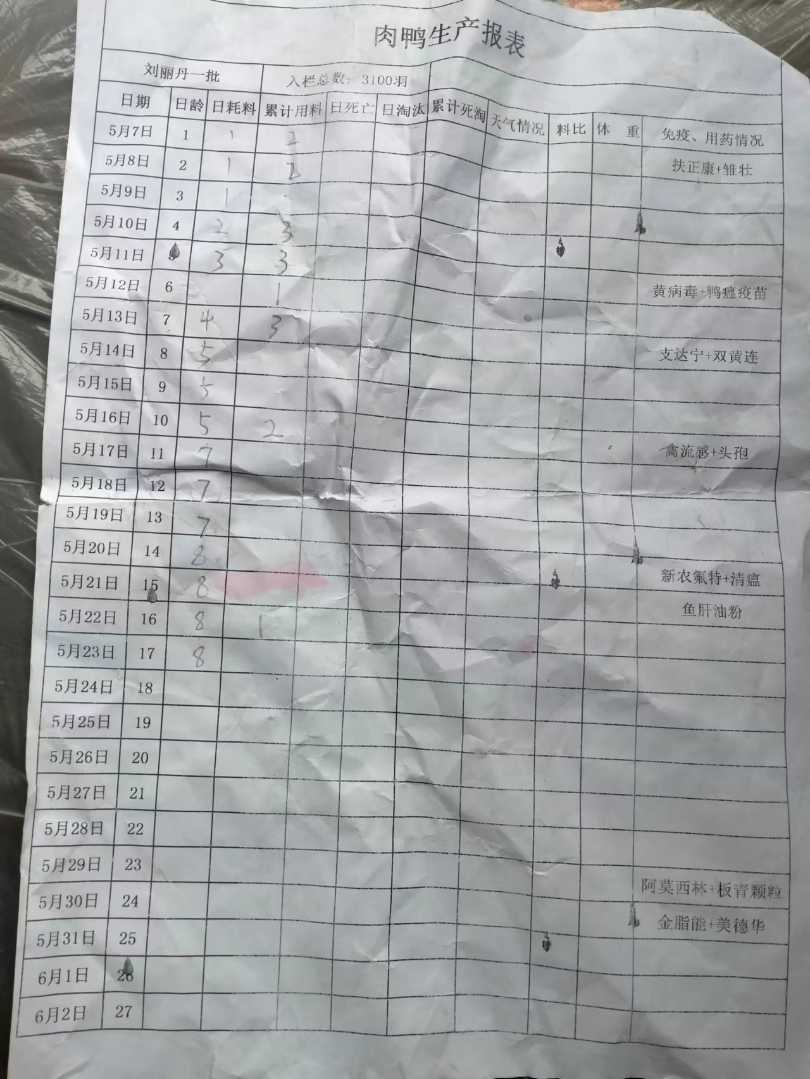 肉鸭生产报表
刘丽丹一批 入栏总数：3100羽
日期 日龄 日耗料 累计用料 日死亡 日淘汰 累计死淘 天气情况 料比 体 重 免疫、用药情况
5月7日 1 1 2
5月8日 2 1 2 扶正康+雏壮
5月9日 3 1
5月10日 4 2 3
5月11日 3 3
5月12日 6 1 黄病毒+鸭瘟疫苗
5月13日 7 4 3
5月14日 8 5 支达宁+双黄连
5月15日 9 5
5月16日 10 5 2
5月17日 11 7 禽流感+头孢
5月18日 12 7
5月19日 13 7
5月20日 14 8
5月21日 15 8 新农氟特+清瘟
5月22日 16 8 1 鱼肝油粉
5月23日 17 8
5月24日 18
5月25日 19
5月26日 20
5月27日 21
5月28日 22
5月29日 23
5月30日 24 阿莫西林+板青颗粒
5月31日 25 金脂能+美德华
6月1日 26
6月2日 27